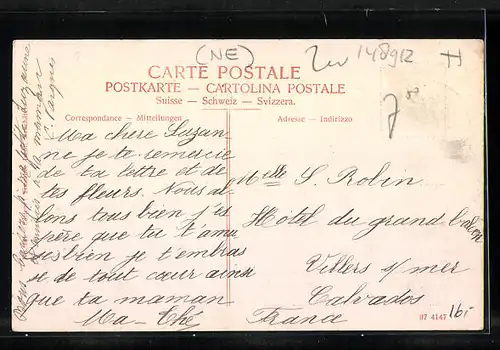 (NE)
148912
CARTE POSTALE
POSTKARTE — CARTOLINA POSTALE
Suisse — Schweiz — Svizzera.
Correspondance — Mitteilungen
Adresse — Indirizzo
Ma chère Suzan
ne je te remercie
de ta lettre et de
tes fleurs. Nous al
lons tous bien j'es
père que tu t'amu
ses bien je t'embras
se de tout cœur ainsi
que ta maman
Ma-Thé
Melle S. Robin
Hôtel du grand balcon
Villers s/ mer
Calvados
France
07 4147
16.-